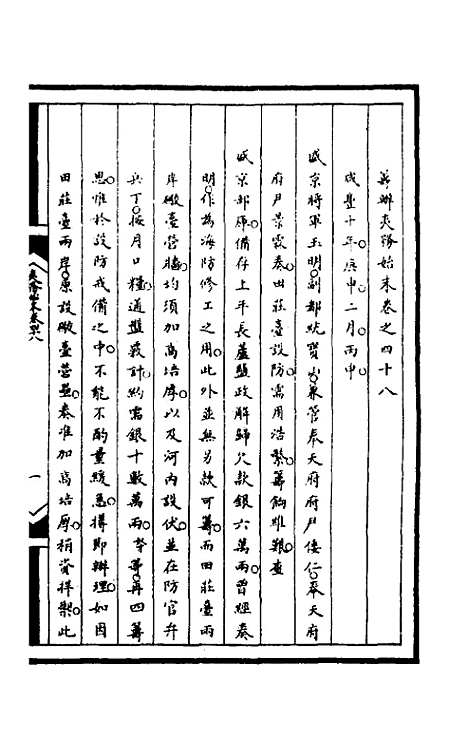 籌辦夷務始末卷之四十八
咸豐十年庚申二月丙申
盛京將軍玉明副都統寶山兼管奉天府府尹倭仁奉天府
府尹景霖奏田莊臺設防需用浩繁籌餉維艱查
盛京部庫備存上年長蘆鹽政解歸欠款銀六萬兩曾經奏
明作為海防修工之用此外並無另款可籌而田莊臺兩
岸礮臺營牆均須加高培厚以及河內設伏並在防官弁
兵丁按月口糧通盤覈計約需銀十數萬兩等再四籌
思惟於設防戒備之中不能不酌量緩急擇即辦理如因
田莊臺兩岸原設礮臺營壘奏准加高培厚捐資撙節此
夷務始末卷四八
一